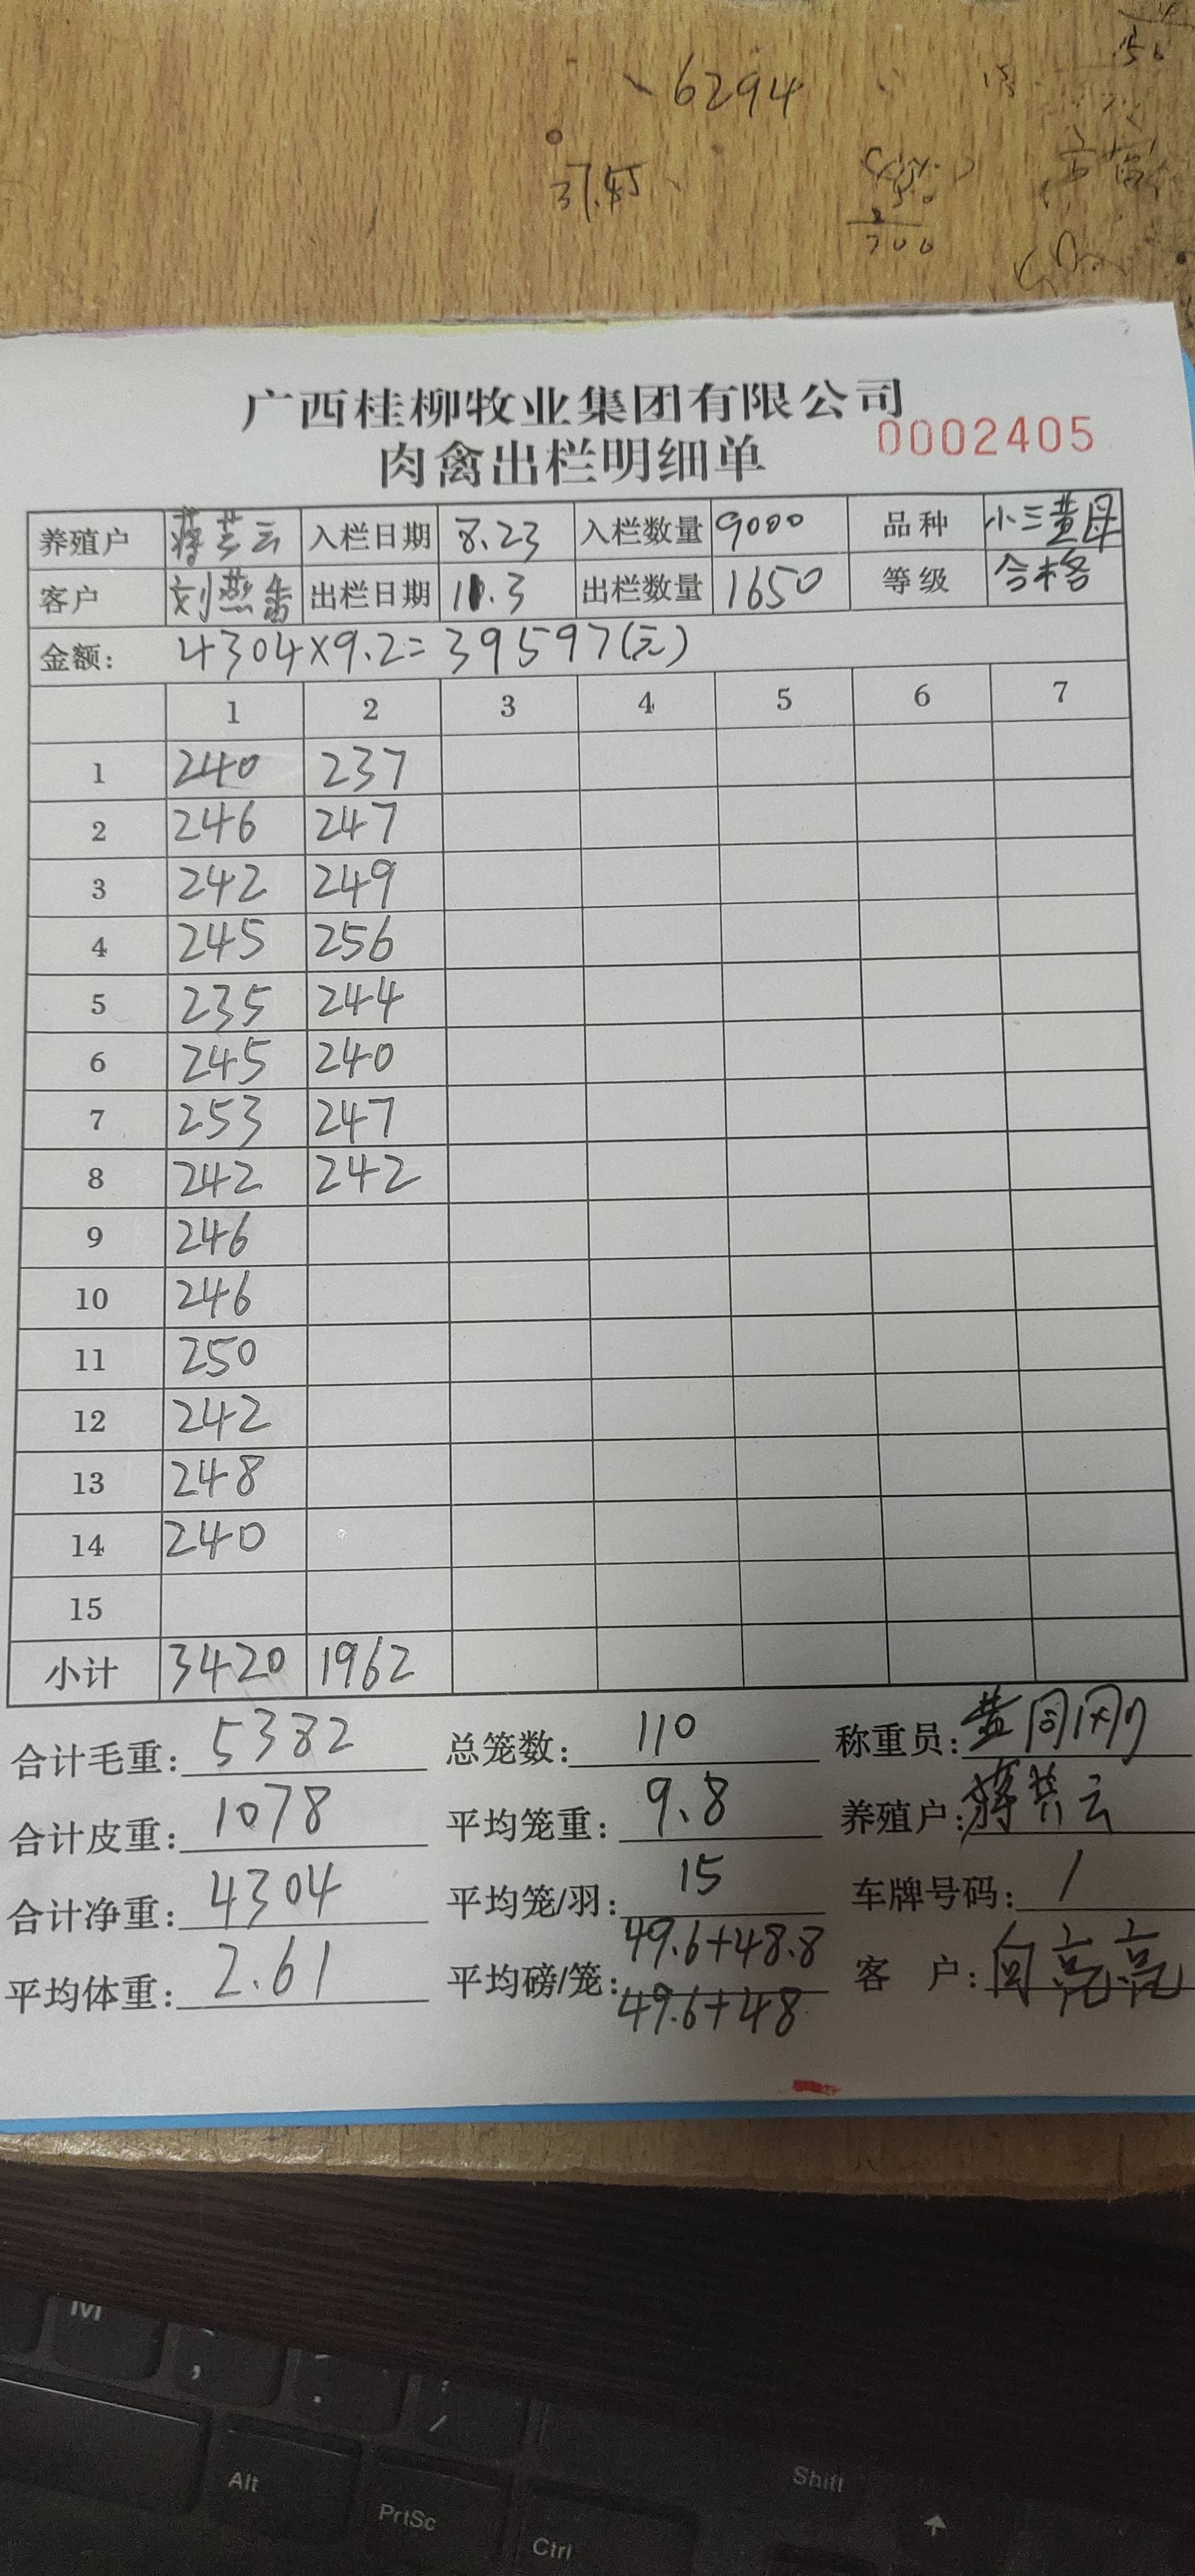 6294
37.45
700
广西桂柳牧业集团有限公司
肉禽出栏明细单 0002405
养殖户 蒋芸云 入栏日期 8.23 入栏数量 9000 品种 小三黄母
客户 刘燕香 出栏日期 11.3 出栏数量 1650 等级 合格
金额: 4304×9.2=39597(元)
1 2 3 4 5 6 7
1 240 237
2 246 247
3 242 249
4 245 256
5 235 244
6 245 240
7 253 247
8 242 242
9 246
10 246
11 250
12 242
13 248
14 240
15
小计 3420 1962
合计毛重: 5382 总笼数: 110 称重员: 黄同刚
合计皮重: 1078 平均笼重: 9.8 养殖户: 蒋芸云
合计净重: 4304 平均笼/羽: 15 车牌号码: /
平均体重: 2.61 平均磅/笼: 49.6+48.8 客 户: 向亮亮
49.6+48
M
,
.
/
Alt
PrtSc
Ctrl
Shift